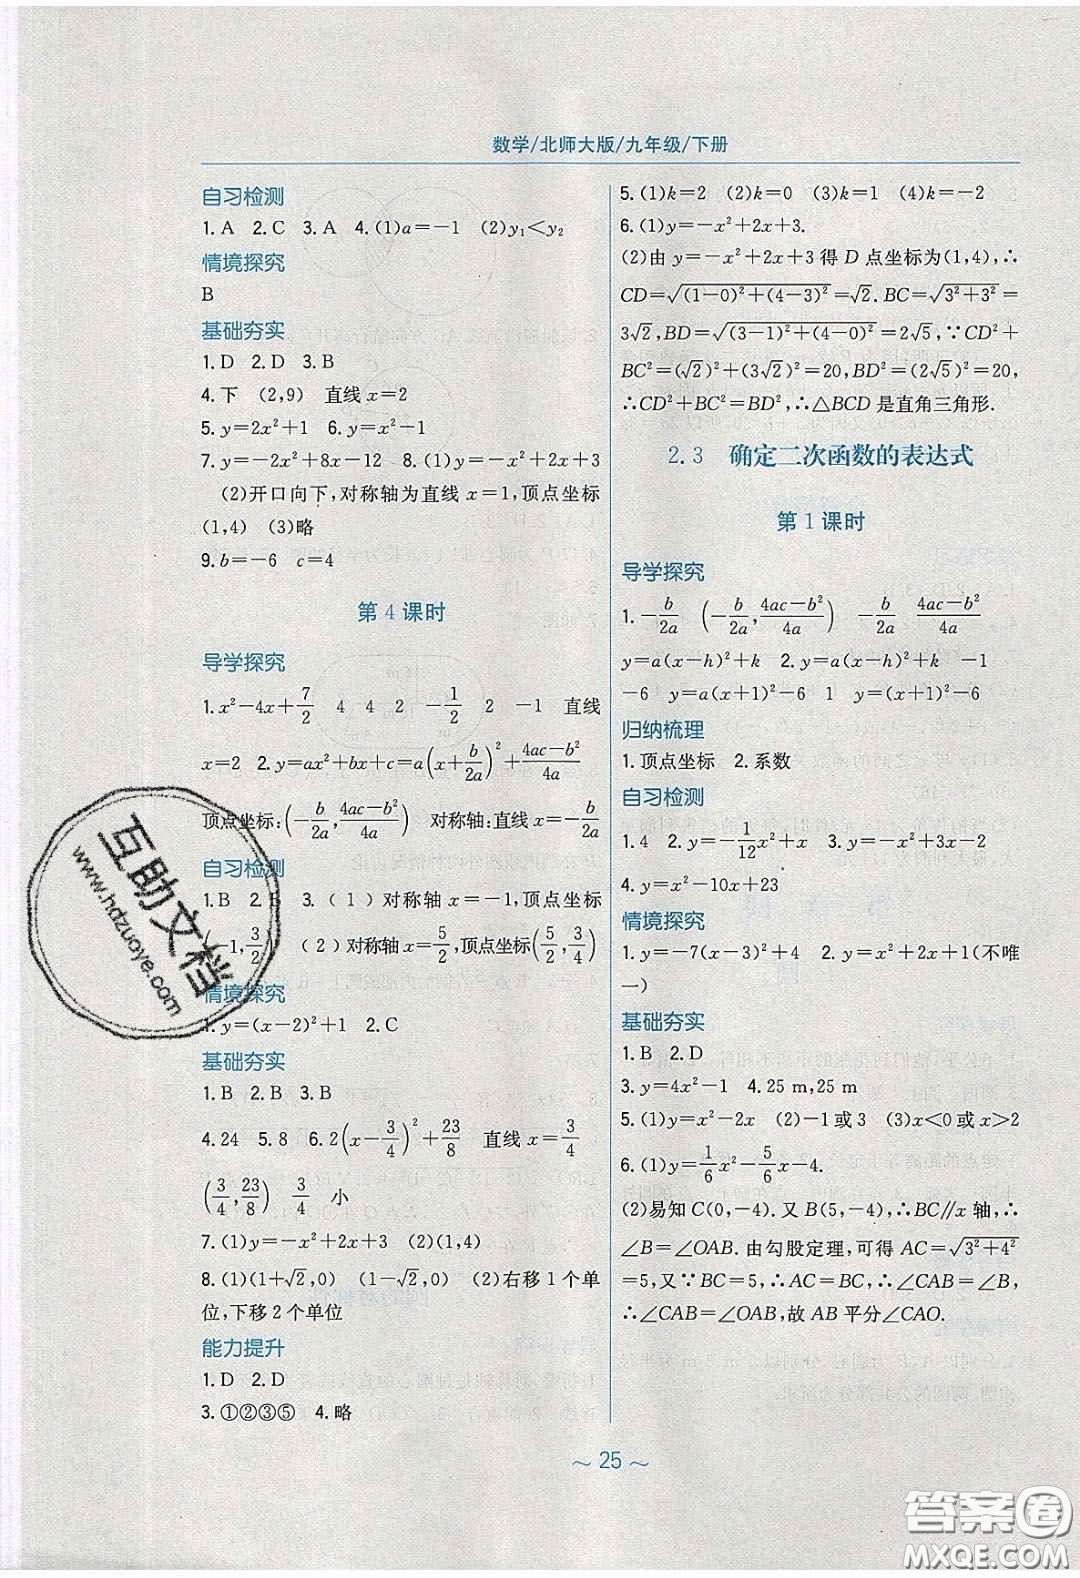 数学/北师大版/九年级/下册
自习检测
1. A 2. C 3. A 4. (1)a=-1 (2)y₁<y₂
情境探究
B
基础夯实
1. D 2. D 3. B
4. 下 (2,9) 直线 x=2
5. y=2x²+1 6. y=x²-1
7. y=-2x²+8x-12 8. (1)y=-x²+2x+3
(2)开口向下,对称轴为直线 x=1,顶点坐标
(1,4) (3)略
9. b=-6 c=4
第 4 课时
导学探究
1. x²-4x+7/2 4 4 2 -1/2 2 -1 直线
x=2 2. y=ax²+bx+c=a(x+b/2a)²+(4ac-b²)/4a
顶点坐标:(-b/2a,(4ac-b²)/4a) 对称轴:直线 x=-b/2a
自习检测
1. B 2. B 3. (1)对称轴 x=-1,顶点坐标
(-1,3/2) (2)对称轴 x=5/2,顶点坐标(5/2,3/4)
情境探究
1. y=(x-2)²+1 2. C
基础夯实
1. B 2. B 3. B
4. 24 5. 8 6. 2(x-3/4)²+23/8 直线 x=3/4
(3/4,23/8) 3/4 小
7. (1)y=-x²+2x+3 (2)(1,4)
8. (1)(1+√2,0) (1-√2,0) (2)右移 1 个单
位,下移 2 个单位
能力提升
1. D 2. D
3. ①②③⑤ 4. 略
5. (1)k=2 (2)k=0 (3)k=1 (4)k=-2
6. (1)y=-x²+2x+3.
(2)由 y=-x²+2x+3 得 D 点坐标为(1,4),∴
CD=√((1-0)²+(4-3)²)=√2. BC=√(3²+3²)=
3√2,BD=√((3-1)²+(4-0)²)=2√5,∵CD²+
BC²=(√2)²+(3√2)²=20,BD²=(2√5)²=20,
∴CD²+BC²=BD²,∴△BCD 是直角三角形.
2.3 确定二次函数的表达式
第 1 课时
导学探究
1. -b/2a (-b/2a,(4ac-b²)/4a) -b/2a (4ac-b²)/4a
y=a(x-h)²+k 2. y=a(x-h)²+k -1
-6 y=a(x+1)²-6 1 y=(x+1)²-6
归纳梳理
1. 顶点坐标 2. 系数
自习检测
1. 4 2. y=-1/12x²+x 3. y=-x²+3x-2
4. y=x²-10x+23
情境探究
1. y=-7(x-3)²+4 2. y=x²+2x+1(不唯
一)
基础夯实
1. B 2. D
3. y=4x²-1 4. 25 m,25 m
5. (1)y=x²-2x (2)-1 或 3 (3)x<0 或 x>2
6. (1)y=1/6x²-5/6x-4.
(2)易知 C(0,-4). 又 B(5,-4),∴BC∥x 轴,∴
∠B=∠OAB. 由勾股定理,可得 AC=√(3²+4²)
=5. 又∵BC=5,∴AC=BC,∴∠CAB=∠B,
∴∠CAB=∠OAB,故 AB 平分∠CAO.
~ 25 ~
互助文档
www.hdzuoye.com
答案圈
MXQE.COM